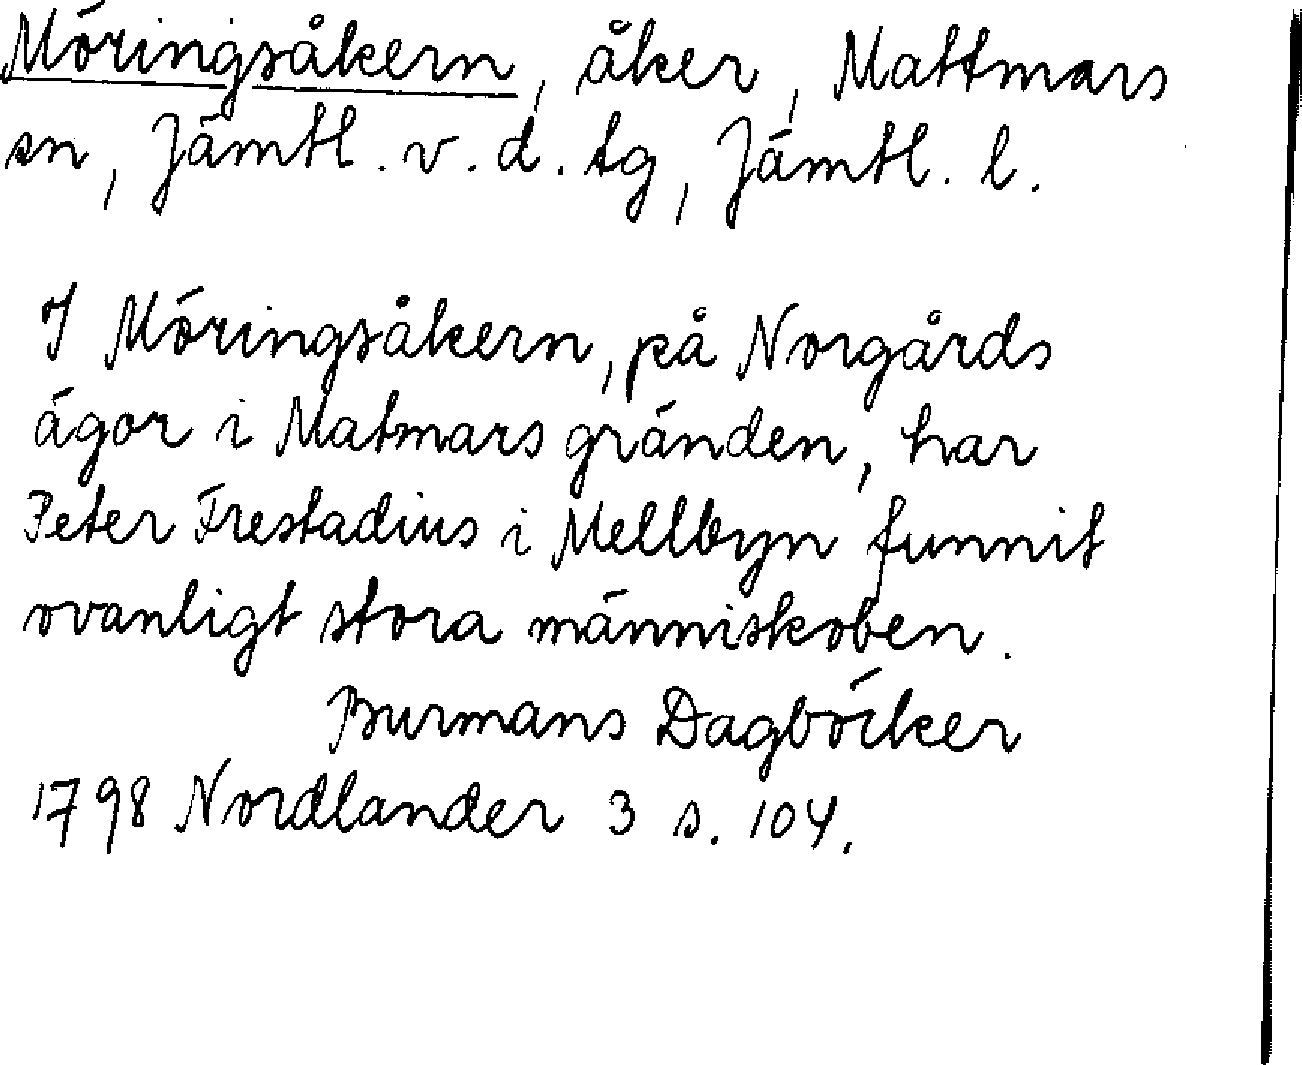 Möringsåkern, åker, Mattmars
sn, Jämtl. v. d. tg, Jämtl. l.
I Möringsåkern, på Norgårds
ägor i Matmars gränden, har
Peter Frestadius i Mellbyn funnit
ovanligt stora människoben.
Burmans Dagböcker
1798 Nordlander 3 s. 104.